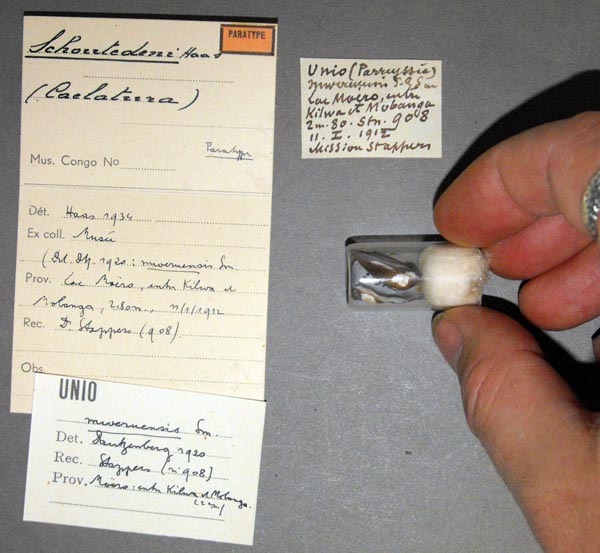 PARATYPE
Schoutedeni Haas
(Caelatura)
Paratype
Mus. Congo No
Dét. Haas 1934
Ex coll. Musée
(Det. Dtz. 1920 : mweruensis Sm.
Prov. Lac Moëro, entre Kilwa et
Mobanga, 2m80., 11/1/1912
Rec. Dr Stappers (908)
Obs.
UNIO
mweruensis Sm.
Det. Dautzenberg 1920
Rec. Stappers (n° 908)
Prov. Moëro : entre Kilwa et Mobanga.
Unio (Parreyssia)
mweruensis
Lac Moero, entre
Kilwa et Mobanga
2m.80. Stn. 908
11. I. 1912
Mission Stappers